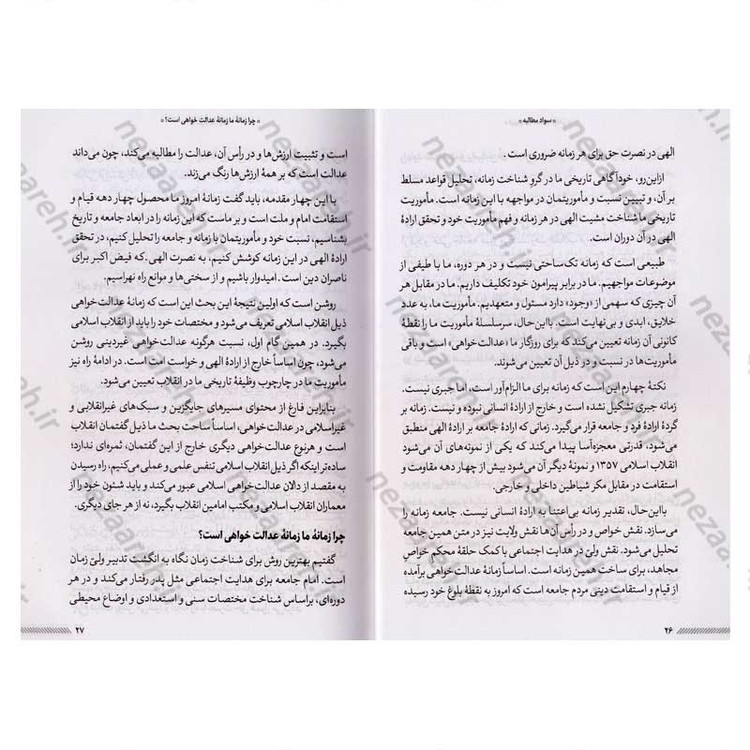 « سواد مطالبه »
الهی در نصرت حق برای هر زمانه ضروری است .
ازاین‌رو، خودآگاهی تاریخی ما در گروِ شناخت زمانه، تحلیل قواعد مسلط
بر آن، و تبیین نسبت و مأموریتمان در مواجهه با این زمانه است. مأموریت
تاریخی ما شناخت مشیت الهی در هر زمانه و فهم مأموریت خود و تحقق ارادهٔ
الهی در آن دوران است.
طبیعی است که زمانه تک‌ساحتی نیست و در هر دوره، ما با طیفی از
موضوعات مواجهیم. ما در برابر پیرامون خود تکلیف داریم. ما در مقابل هر
آن چیزی که سهمی از «وجود» دارد مسئول و متعهدیم. مأموریت ما، به عدد
خلایق، ابدی و بی‌نهایت است. بااین‌حال، سرسلسلهٔ مأموریت ما را نقطهٔ
کانونی آن زمانه تعیین می‌کند که برای روزگار ما «عدالت‌خواهی» است و باقی
مأموریت‌ها در نسبت و در ذیل آن تعیین می‌شوند.
نکتهٔ چهارم این است که زمانه برای ما الزام‌آور است، اما جبری نیست.
زمانه جبری تشکیل نشده است و خارج از ارادهٔ انسانی نبوده و نیست. زمانه بر
گردهٔ ارادهٔ فرد و جامعه قرار می‌گیرد. زمانی که ارادهٔ جامعه بر ارادهٔ الهی منطبق
می‌شود، قدرتی معجزه‌آسا پیدا می‌کند که یکی از نمونه‌های آن می‌شود
انقلاب اسلامی ۱۳۵۷ و نمونهٔ دیگر آن می‌شود بیش از چهار دهه مقاومت و
استقامت در مقابل مکر شیاطین داخلی و خارجی.
بااین‌حال، تقدیر زمانه بی‌اعتنا به ارادهٔ انسانی نیست. جامعه زمانه را
می‌سازد. نقش خواص و در رأس آن‌ها نقش ولایت نیز در متن همین جامعه
تحلیل می‌شود. نقش ولیّ در هدایت اجتماعی با کمک حلقهٔ محکم خواصِ
مجاهد، برای ساخت همین زمانه است. اساساً زمانهٔ عدالت‌خواهی برآمده
از قیام و استقامت دینی مردم جامعه است که امروز به نقطهٔ بلوغ خود رسیده
۲۶
« چرا زمانهٔ ما زمانهٔ عدالت خواهی است؟ »
است و تثبیت ارزش‌ها و در رأس آن، عدالت را مطالبه می‌کند، چون می‌داند
عدالت است که بر همهٔ ارزش‌ها رنگ می‌زند.
با این چهار مقدمه، باید گفت زمانهٔ امروز ما محصول چهار دهه قیام و
استقامت امام و ملت است و بر ماست که این زمانه را در ابعاد جامعه و تاریخ
بشناسیم، نسبت خود و مأموریتمان با زمانه و جامعه را تحلیل کنیم، در تحقق
ارادهٔ الهی در این زمانه کوشش کنیم، به نصرت الهی -که فیض اکبر برای
ناصران دین است- امیدوار باشیم و از سختی‌ها و موانع راه نهراسیم.
روشن است که اولین نتیجهٔ این بحث این است که زمانهٔ عدالت‌خواهی
ذیل انقلاب اسلامی تعریف می‌شود و مختصات خود را باید از انقلاب اسلامی
بگیرد. در همین گام اول، نسبت هرگونه عدالت‌خواهی غیردینی روشن
می‌شود، چون اساساً خارج از ارادهٔ الهی و خواست امت است. در ادامهٔ راه نیز
مأموریت ما در چارچوب وظیفهٔ تاریخی ما در انقلاب تعیین می‌شود.
بنابراین فارغ از محتوای مسیرهای جایگزین و سبک‌های غیرانقلابی و
غیراسلامی در عدالت‌خواهی، اساساً ساحت بحث ما ذیل گفتمان انقلاب
است و هرنوع عدالت‌خواهی دیگری خارج از این گفتمان، ثمره‌ای ندارد؛
ساده‌تر اینکه اگر ذیل انقلاب اسلامی تنفس علمی و عملی می‌کنیم، راه رسیدن
به مقصد از دالان عدالت‌خواهی اسلامی عبور می‌کند و باید شئون خود را از
معماران انقلاب اسلامی و مکتب امامین انقلاب بگیرد، نه از هر جای دیگری.
چرا زمانهٔ ما زمانهٔ عدالت خواهی است؟
گفتیم بهترین روش برای شناخت زمان نگاه به انگشت تدبیر ولیّ زمان
است. امام جامعه برای هدایت اجتماعی مثل پدر رفتار می‌کند و در هر
دوره‌ای، براساس شناخت مختصات سنی و استعدادی و اوضاع محیطی
۲۷
nezaareh.ir